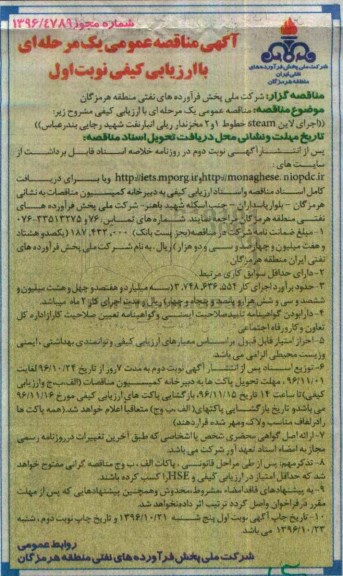 شماره مجوز ۱۳۹۶/٤۷۸۹
شرکت ملی پخش فرآورده‌های
نفتی ایران
منطقه هرمزگان
آگهی مناقصه عمومی یک مرحله ای
با ارزیابی کیفی نوبت اول
مناقصه گزار: شرکت ملی پخش فرآورده های نفتی منطقه هرمزگان
موضوع مناقصه: مناقصه عمومی یک مرحله ای با ارزیابی کیفی مشروح زیر:
((اجرای لاین steam خطوط ۱و۲ مخزندار ریلی انبار نفت شهید رجایی بندرعباس))
تاریخ مهلت ونشانی محل دریافت تحویل اسناد مناقصه:
پس از انتشار آگهی نوبت دوم در روزنامه خلاصه اسناد قابل برداشت از
سایت های :
http://iets.mporg.ir،http://monaghese. niopdc.ir ویا برای دریافت
کامل اسناد مناقصه واسناد ارزیابی کیفی به دبیرخانه کمیسیون مناقصات به نشانی
هرمزگان - بلوارپاسداران - جنب اسکله شهید باهنر- شرکت ملی پخش فرآورده های
نفتی منطقه هرمزگان مراجعه نمایند. شماره های تماس: ۷۶ و ۳۳۵۱۳۲۷۵-۰۷۶
۱- مبلغ ضمانت نامه شرکت در مناقصه(بجز پست بانک) ۱۸۷,۴۳۲,۰۰۰ (یکصدو هشتاد
و هفت میلیون و چهارصد و سی و دو هزار) ریال . به نام شرکت ملی پخش فرآورده های
نفتی ایران منطقه هرمزگان.
۲- دارای حداقل سوابق کاری مرتبط .
۳- حدود برآورد اجرای کار ۳,۷۴۸,۶۳۶,۵۵۴ (سه میلیارد و هفتصد و چهل و هشت میلیون و
ششصد و سی و شش هزار و پانصد و پنجاه و چهار) ریال و مدت اجرای کار ۲ ماه میباشد
۴- دارابودن گواهینامه تأییدصلاحیت ایمنی وگواهینامه تعیین صلاحیت کار ازاداره کل
تعاون وکارورفاه اجتماعی
۵- احراز امتیاز قابل قبول براساس معیارهای ارزیابی کیفی و توانمندی بهداشتی ، ایمنی
وزیست محیطی الزامی می باشد
۶- توزیع اسناد پس از انتشار آگهی نوبت دوم به مدت ۷روز از تاریخ ۹۶/۱۰/۲۴ لغایت
۹۶/۱۱/۰۱ ، مهلت تحویل پاکت ها به دبیرخانه کمیسیون مناقصات (الف،ب،ج وارزیابی
کیفی)تا ساعت ۱۴ تاریخ ۹۶/۱۱/۱۵ ، بازگشایی پاکت های ارزیابی کیفی مورخ ۹۶/۱۱/۱۶
می باشدو تاریخ بازگشایی پاکتها( الف،ب وج) متعاقبا اعلام خواهد شد.(همه پاکت ها
رادرلفاف مناسب ولاک ومهر شده قراردهند)
۷- ارائه اصل گواهی محضری شخص یا اشخاصی که طبق آخرین تغییرات درروزنامه رسمی
مجاز به امضاء اسناد تعهدآور شرکت می باشد.
۸- تذکرمهم: پس از طی مراحل قانونی ، پاکات الف ، ب وج مناقصه گرانی مفتوح خواهد
شد که حداقل امتیاز در ارزیابی کیفی و HSEرا کسب کرده باشند.
۹- به پیشنهادهای فاقد امضاء مشروط مخدوش وهمچنین پیشنهادهایی که پس از مهلت
مقرر درفراخوان واصل گردد ترتیب اثر داده نخواهد شد.
۱۰- تاریخ چاپ آگهی نوبت اول پنج شنبه ۱۳۹۶/۱۰/۲۱ و تاریخ چاپ نوبت دوم ، شنبه
۱۳۹۶/۱۰/۲۳ می باشد.
روابط عمومی
شرکت ملی پخش فرآورده های نفتی منطقه هرمزگان